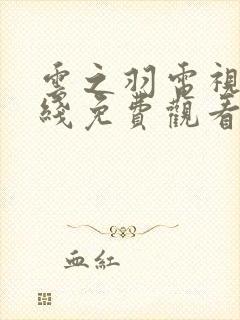 雲之羽電視
綫免費觀看
血紅